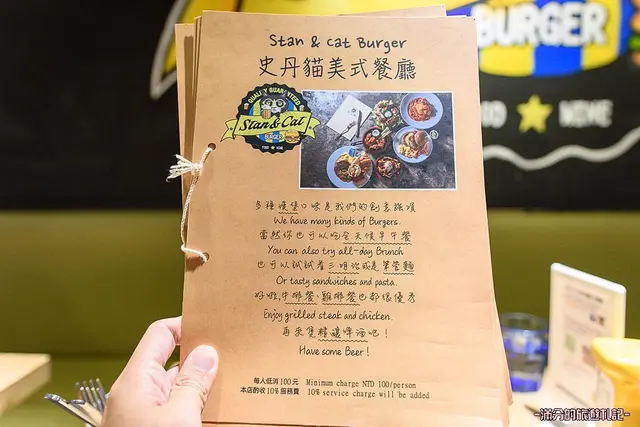 BURGER
FOOD ★ WINE
Stan & Cat Burger
史丹貓美式餐廳
QUALITY GUARANTEED
Stan & Cat
BURGER
FOOD WINE
多種漢堡口味是我們的創意強項
We have many kinds of Burgers.
當然你也可以吃全天候早午餐
You can also try all-day Brunch
也可以試試看三明治或是筆管麵
Or tasty sandwiches and pasta.
好啦,牛排餐、雞排餐也都很優秀
Enjoy grilled steak and chicken.
再來隻精釀啤酒吧!
Have some Beer!
每人低消100元 Minimum charge NTD 100/person
本店酌收10%服務費 10% service charge will be added
~滿分的旅遊札記~